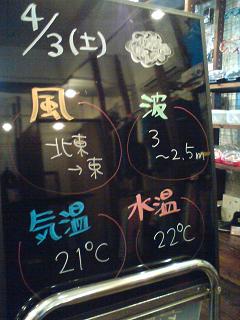 4/3(土)
風
北東
→東
波
3
~2.5m
気温
21℃
水温
22℃